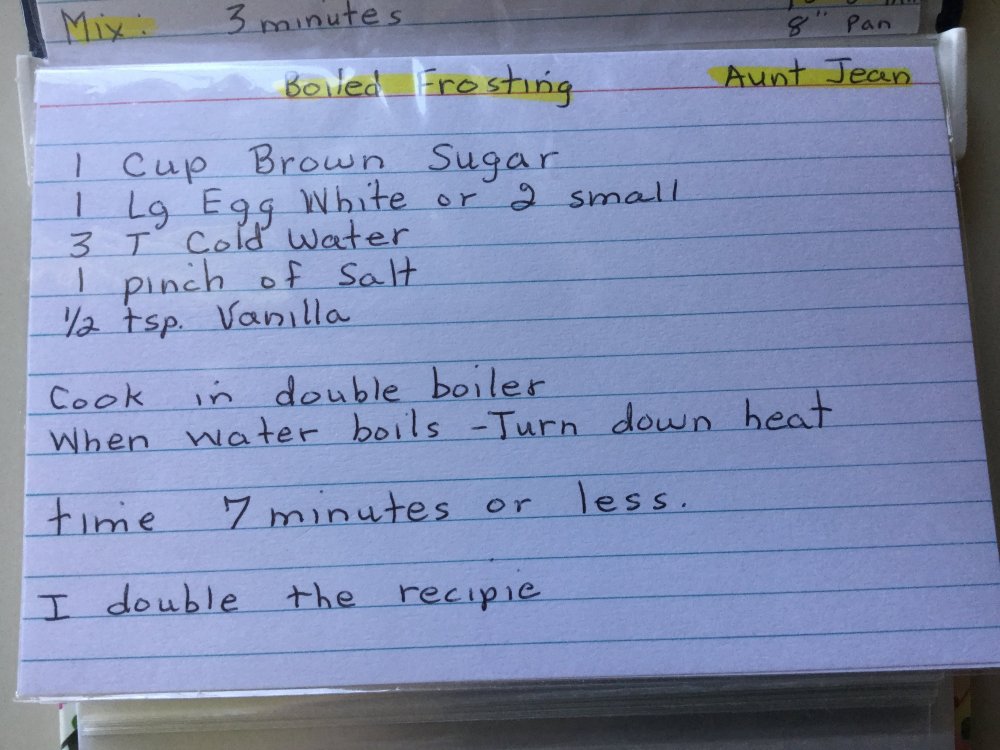 Mix: 3 minutes
8" Pan
Boiled Frosting Aunt Jean
1 Cup Brown Sugar
1 Lg Egg White or 2 small
3 T Cold Water
1 pinch of Salt
1/2 tsp. Vanilla
Cook in double boiler
When water boils - Turn down heat
time 7 minutes or less.
I double the recipie